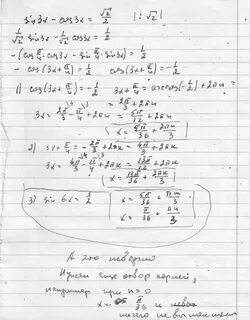 sin3x - cos3x = √2/2 |:√2
1/√2 sin3x - 1/√2 cos3x = 1/2
-(cos π/4 · cos3x - sin π/4 · sin3x) = 1/2
-cos(3x + π/4) = 1/2 cos(3x + π/4) = -1/2
1) cos(3x + π/4) = -1/2 3x + π/4 = arccos(-1/2) + 2πn =
= 2π/3 + 2πn
3x = 2π/3 - π/4 + 2πn = 5π/12 + 2πn
x = 5π/36 + 2πn/3
2) 3x + π/4 = 4π/3 + 2πk
3x = 4π/3 - π/4 + 2πk = 13π/12 + 2πk
x = 13π/36 + 2πk/3
3) sin 6x = 1/2 x = 5π/36 + πm/3
x = π/36 + πn/3
А это неверно
Нужен еще отбор корней,
например при n=0
x = π/36 и